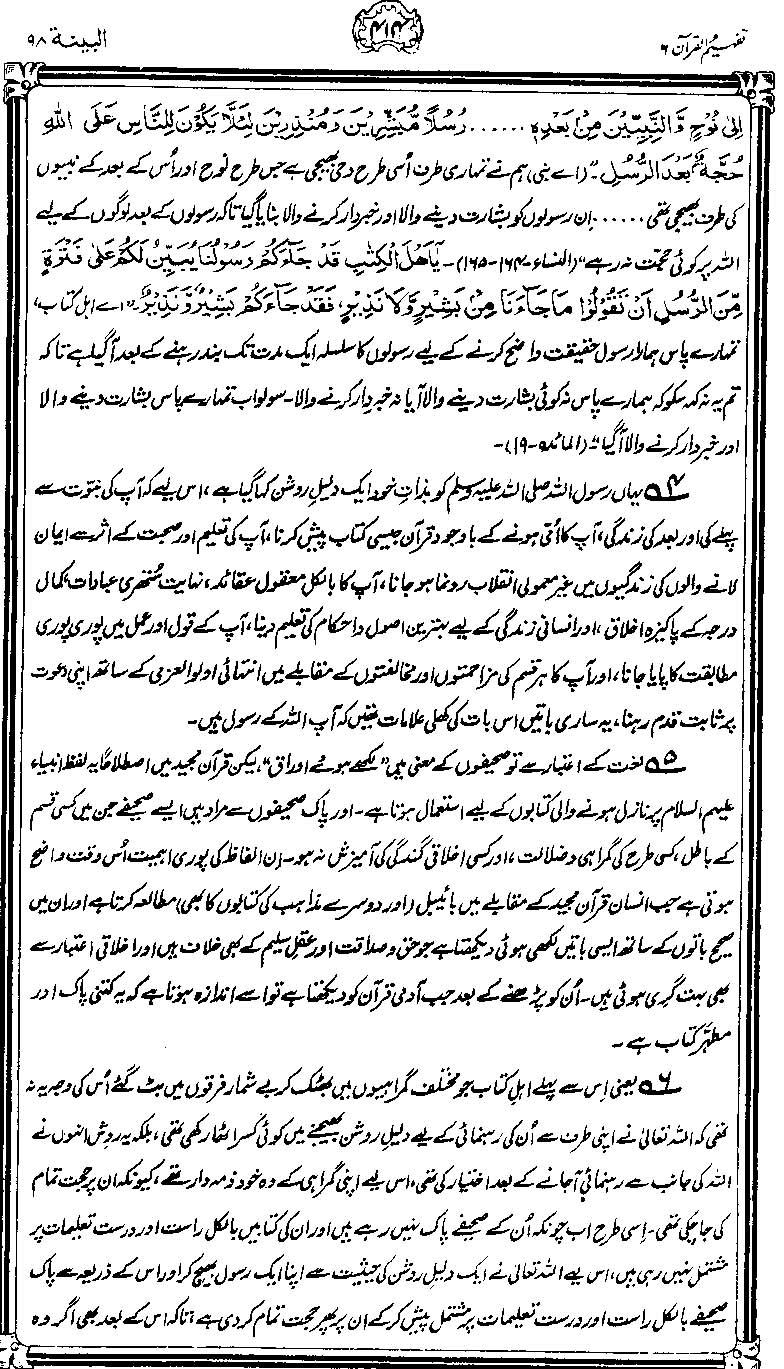 تفہیم القرآن ۶
۴۱۴
البینۃ ۹۸
اِلٰی نُوْحٍ وَّالنَّبِیّٖنَ مِنْ بَعْدِہٖ ...... رُسُلًا مُّبَشِّرِیْنَ وَمُنْذِرِیْنَ لِئَلَّا یَکُوْنَ لِلنَّاسِ عَلَی اللہِ
حُجَّۃٌۢ بَعْدَ الرُّسُلِ۔ ”(اے نبی) ہم نے تمہاری طرف اُسی طرح وحی بھیجی ہے جس طرح نوح اور اُس کے بعد کے نبیوں
کی طرف بھیجی تھی ...... اِن رسولوں کو بشارت دینے والا اور خبردار کرنے والا بنایا گیا تاکہ رسولوں کے بعد لوگوں کے لیے
اللہ پر کوئی حجت نہ رہے“ (النساء۔۱۶۳-۱۶۵)۔ یٰٓاَھْلَ الْکِتٰبِ قَدْ جَآءَکُمْ رَسُوْلُنَا یُبَیِّنُ لَکُمْ عَلٰی فَتْرَۃٍ
مِّنَ الرُّسُلِ اَنْ تَقُوْلُوْا مَا جَآءَنَا مِنْۢ بَشِیْرٍ وَّلَا نَذِیْرٍ، فَقَدْ جَآءَکُمْ بَشِیْرٌ وَّنَذِیْرٌ۔ ”اے اہلِ کتاب،
تمہارے پاس ہمارا رسول حقیقت واضح کرنے کے لیے رسولوں کا سلسلہ ایک مدت تک بند رہنے کے بعد آگیا ہے تاکہ
تم یہ نہ کہہ سکو کہ ہمارے پاس نہ کوئی بشارت دینے والا آیا نہ خبردار کرنے والا۔ سو لو اب تمہارے پاس بشارت دینے والا
اور خبردار کرنے والا آگیا“ (المائدہ۔۱۹)۔
۴ یہاں رسول اللہ صلی اللہ علیہ وسلم کو بذاتِ خود ایک دلیلِ روشن کہا گیا ہے، اس لیے کہ آپ کی نبوت سے
پہلے کی اور بعد کی زندگی، آپ کا اُمّی ہونے کے باوجود قرآن جیسی کتاب پیش کرنا، آپ کی تعلیم اور صحبت کے اثر سے ایمان
لانے والوں کی زندگیوں میں غیر معمولی انقلاب رونما ہو جانا، آپ کا بالکل معقول عقائد، نہایت ستھری عبادات، کمال
درجہ کے پاکیزہ اخلاق، اور انسانی زندگی کے لیے بہترین اصول و احکام کی تعلیم دینا، آپ کے قول اور عمل میں پوری پوری
مطابقت کا پایا جانا، اور آپ کا ہر قسم کی مزاحمتوں اور مخالفتوں کے مقابلے میں انتہائی اولوالعزمی کے ساتھ اپنی دعوت
پر ثابت قدم رہنا، یہ ساری باتیں اس بات کی کھلی علامات تھیں کہ آپ اللہ کے رسول ہیں۔
۵ لغت کے اعتبار سے تو صحیفوں کے معنی ہیں ”لکھے ہوئے اوراق“، لیکن قرآن مجید میں اصطلاحًا یہ لفظ انبیاء
علیہم السلام پر نازل ہونے والی کتابوں کے لیے استعمال ہوتا ہے۔ اور پاک صحیفوں سے مراد ہیں ایسے صحیفے جن میں کسی قسم
کے باطل، کسی طرح کی گمراہی و ضلالت، اور کسی اخلاقی گندگی کی آمیزش نہ ہو۔ اِن الفاظ کی پوری اہمیت اُس وقت واضح
ہوتی ہے جب انسان قرآن مجید کے مقابلے میں بائیبل (اور دوسرے مذاہب کی کتابوں کا بھی) مطالعہ کرتا ہے اور ان میں
صحیح باتوں کے ساتھ ایسی باتیں لکھی ہوئی دیکھتا ہے جو حق و صداقت اور عقلِ سلیم کے بھی خلاف ہیں اور اخلاقی اعتبار سے
بھی بہت گری ہوئی ہیں۔ اُن کو پڑھنے کے بعد جب آدمی قرآن کو دیکھتا ہے تو اسے اندازہ ہوتا ہے کہ یہ کتنی پاک اور
مطہّر کتاب ہے۔
۶ یعنی اِس سے پہلے اہلِ کتاب جو مختلف گمراہیوں میں بھٹک کر بے شمار فرقوں میں بٹ گئے اُس کی وجہ یہ نہ
تھی کہ اللہ تعالیٰ نے اپنی طرف سے اُن کی رہنمائی کے لیے دلیلِ روشن بھیجنے میں کوئی کسر اٹھا رکھی تھی، بلکہ یہ روش انہوں نے
اللہ کی جانب سے رہنمائی آجانے کے بعد اختیار کی تھی، اس لیے اپنی گمراہی کے وہ خود ذمہ دار تھے، کیونکہ ان پر حجت تمام
کی جاچکی تھی۔ اِسی طرح اب چونکہ اُن کے صحیفے پاک نہیں رہے ہیں اور ان کی کتابیں بالکل راست اور درست تعلیمات پر
مشتمل نہیں رہی ہیں، اس لیے اللہ تعالیٰ نے ایک دلیل روشن کی حیثیت سے اپنا ایک رسول بھیج کر اور اس کے ذریعہ سے پاک
صحیفے بالکل راست اور درست تعلیمات پر مشتمل پیش کر کے ان پر پھر حجت تمام کردی ہے، تاکہ اس کے بعد بھی اگر وہ